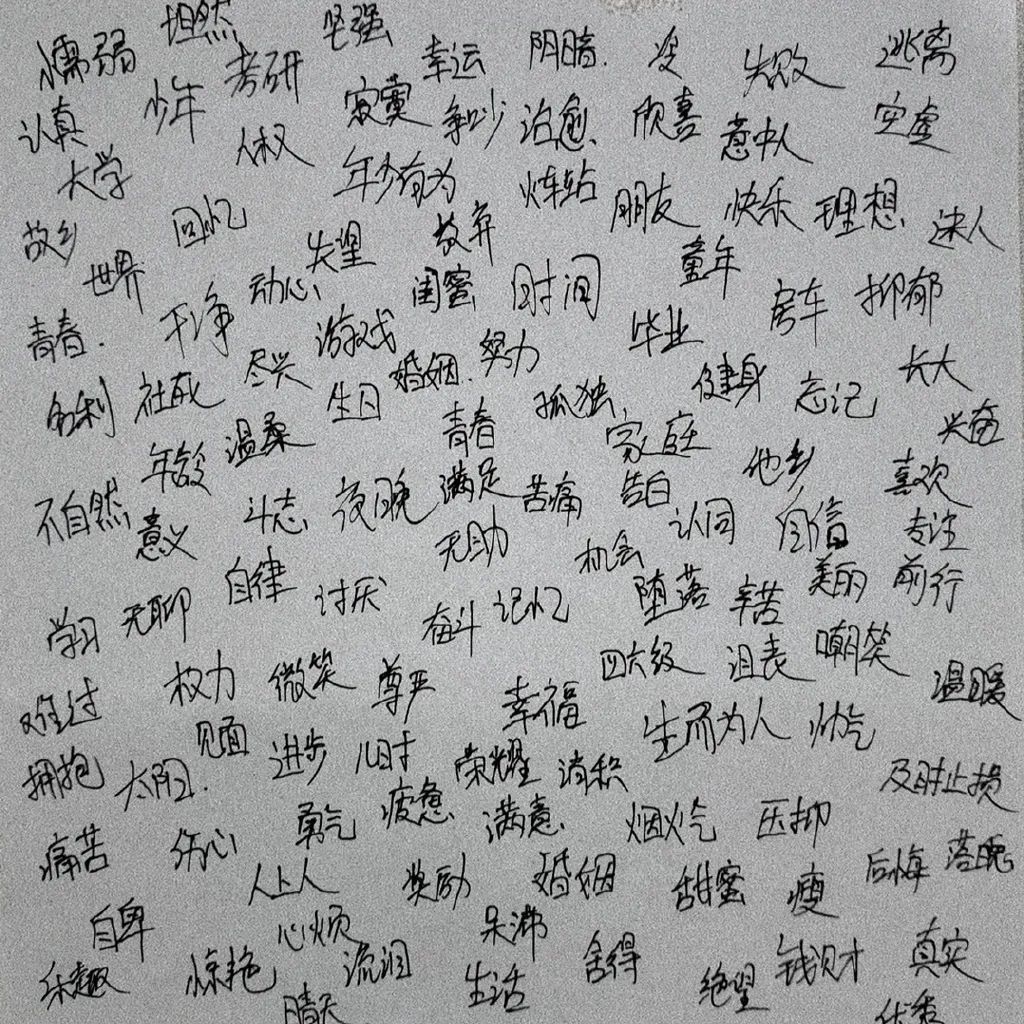 懦弱 坦然 坚强 幸运 阴暗 没 失败 逃离
认真 少年 考研 寂寞 争吵 治愈 欣喜 意中人 空虚
大学 人权 年少有为 炼站 朋友 快乐 理想 迷人
故乡 回忆 失望 放弃 童年
世界 动心 闺蜜 时间 房车 抑郁
青春 干净 游戏 努力 毕业
名利 社死 尽兴 生日 婚姻 孤独 健身 忘记 长大
年龄 温柔 青春 家庭 他乡 兴奋
不自然 意义 斗志 夜晚 满足 苦痛 告白 认同 自信 喜欢 专注
学习 无聊 自律 讨厌 无助 机会 堕落 辛苦 美丽 前行
奋斗 记忆
难过 权力 微笑 尊严 幸福 四六级 泪表 嘲笑 温暖
拥抱 太阳 见面 进步 儿时 荣耀 消积 生而为人 帅气 及时止损
痛苦 伤心 勇气 疲惫 满意 烟火气 压抑 后悔 落晚
人上人 奖励 婚姻 甜蜜 瘦
自卑 心烦 呆滞
乐趣 惊艳 流泪 生活 舍得 绝望 钱财 真实
晴天 优秀